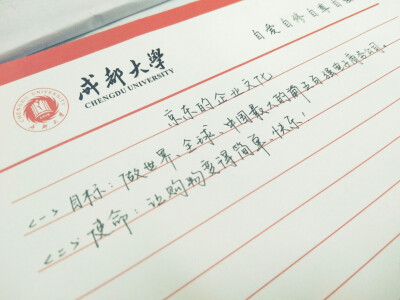 自爱 自修 自尊 自
成都大學
CHENGDU UNIVERSITY
京东的企业文化
<一>目标：做世界、全球、中国最大的前五百强电子商务公司。
<二>使命：让购物变得简单、快乐！